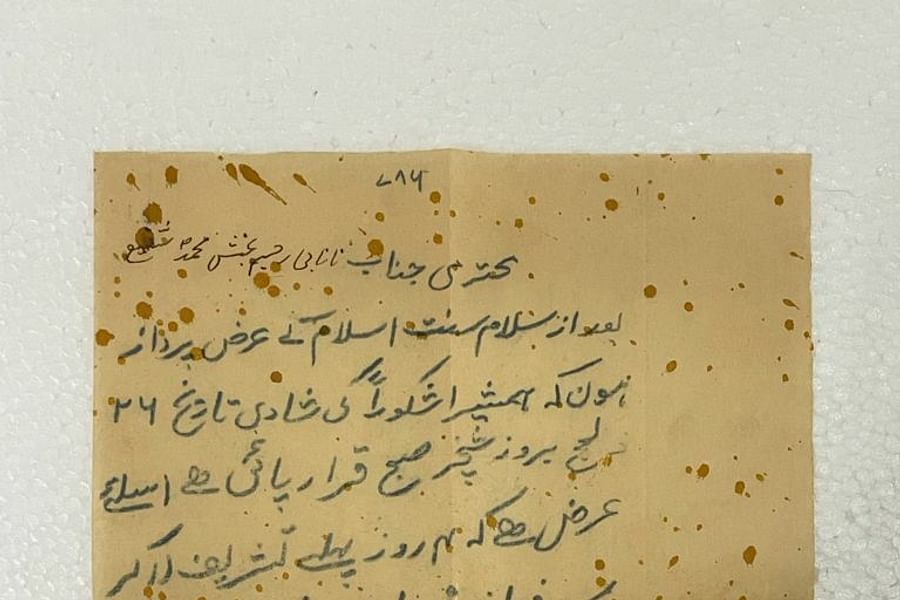 ۷۸۶
محترمی جناب نانابی رحیم بخش محمد شفیع
بعد از سلام سنت اسلام کے عرض پرداز
ہوں کہ ہمشیرا شکوراً کی شادی تاریخ ۲۶
بروز صبح قرار پائی ہے اسلئے
عرض ہے کہ ۴ روز پہلے تشریف لا کر